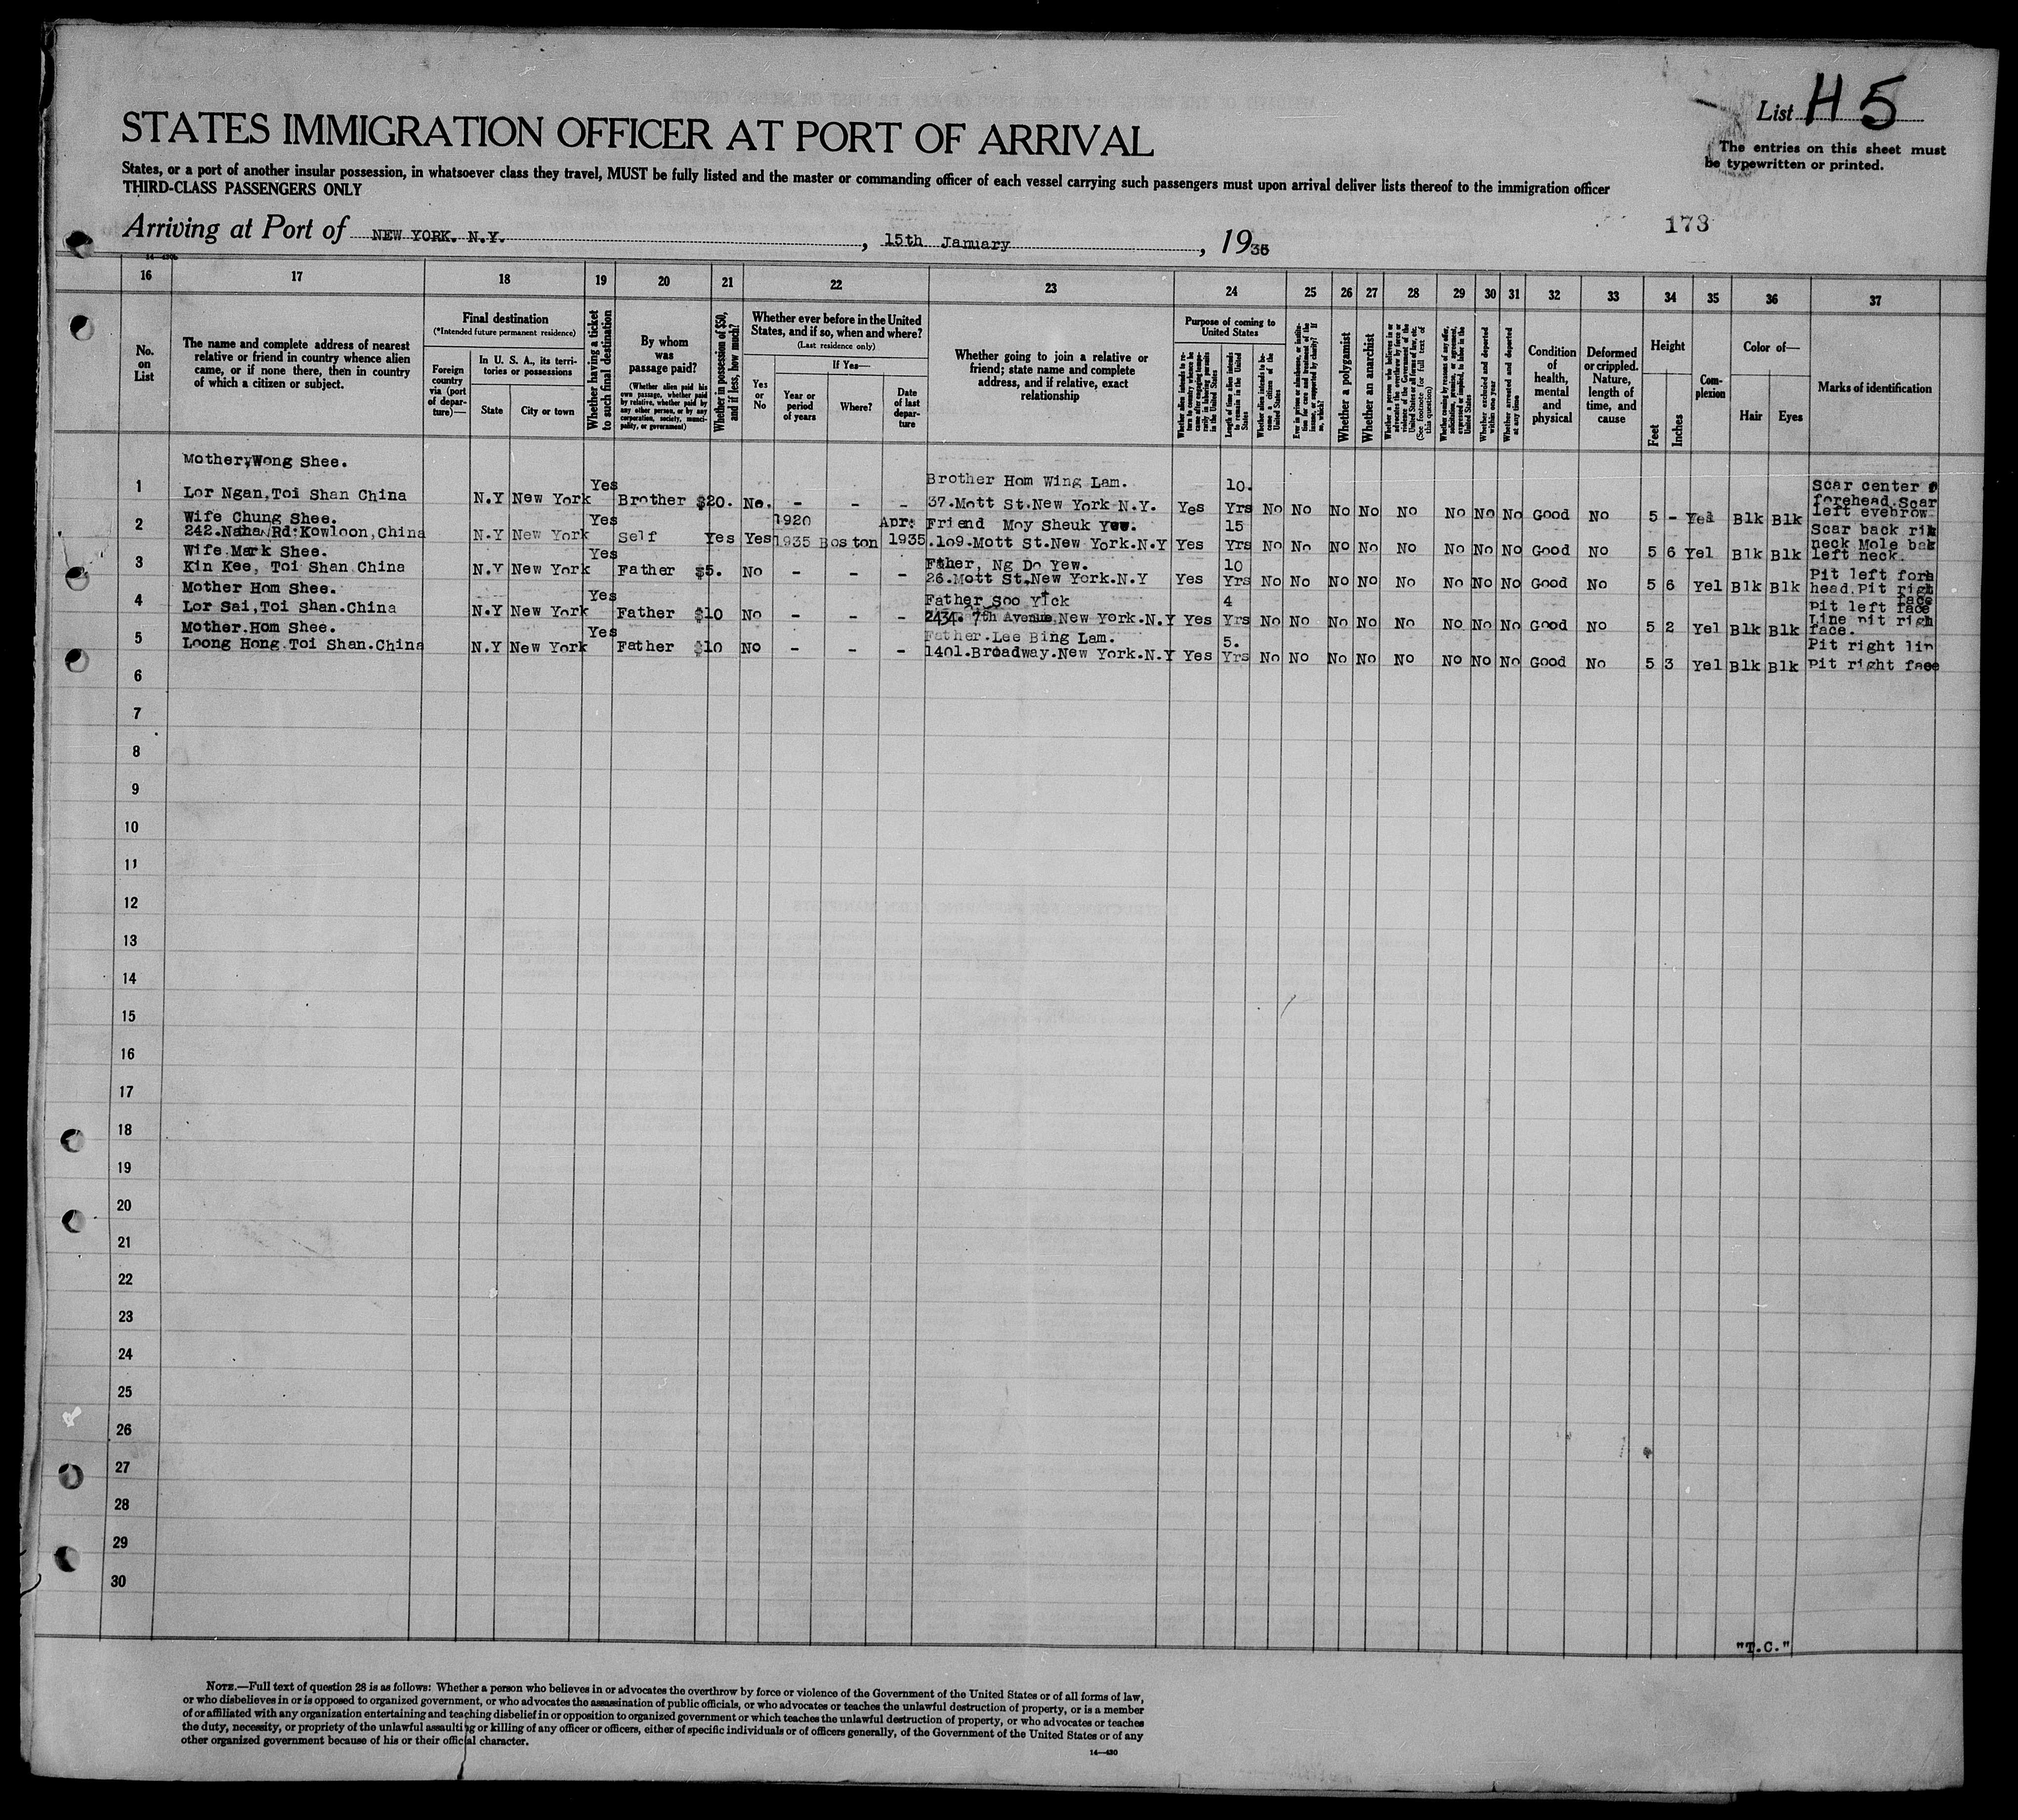 List H 5
The entries on this sheet must
be typewritten or printed.
STATES IMMIGRATION OFFICER AT PORT OF ARRIVAL
States, or a port of another insular possession, in whatsoever class they travel, MUST be fully listed and the master or commanding officer of each vessel carrying such passengers must upon arrival deliver lists thereof to the immigration officer
THIRD-CLASS PASSENGERS ONLY
173
Arriving at Port of NEW YORK. N.Y. , 15th January , 1936
16 17 18 19 20 21 22 23 24 25 26 27 28 29 30 31 32 33 34 35 36 37
No. on List
The name and complete address of nearest
relative or friend in country whence alien
came, or if none there, then in country
of which a citizen or subject.
Final destination
(*Intended future permanent residence)
Foreign country via (port of departure)—
In U. S. A., its territories or possessions
State
City or town
Whether having a ticket to such final destination
By whom was passage paid?
(Whether alien paid his own passage, whether paid by relative, whether paid by any other person, or by any corporation, society, municipality, or government)
Whether in possession of $50, and if less, how much?
Whether ever before in the United States, and if so, when and where?
(Last residence only)
Yes or No
If Yes—
Year or period of years
Where?
Date of last departure
Whether going to join a relative or
friend; state name and complete
address, and if relative, exact
relationship
Purpose of coming to United States
Length of time alien intends to remain in the United States
Whether alien intends to become a citizen of the United States
Whether a polygamist
Whether an anarchist
(See footnote for full text of this question)
Whether excluded and deported within one year
Whether arrested and deported at any time
Condition of health, mental and physical
Deformed or crippled. Nature, length of time, and cause
Height
Feet
Inches
Complexion
Color of—
Hair
Eyes
Marks of identification
Mother, Wong Shee. Brother Hom Wing Lam. 10. Scar center
1 Lor Ngan, Toi Shan China N.Y New York Yes Brother $20. No. - - - 37.Mott St.New York N.Y. Yes Yrs No No No No No No No No Good No 5 - Yel Blk Blk forehead.Scar left eyebrow
Wife Chung Shee. 1920 Apr: Friend Moy Sheuk Yew. 15 Scar back
2 242. Rd.Kowloon, China N.Y New York Yes Self Yes Yes 1935 Boston 1935 .109.Mott St.New York.N.Y Yes Yrs No No No No No No No No Good No 5 6 Yel Blk Blk neck Mole left neck.
Wife Mark Shee. Father, Ng Do Yew. 10 Pit left
3 Kin Kee, Toi Shan China N.Y New York Yes Father $5. No - - - 26.Mott St.New York.N.Y Yes Yrs No No No No No No No No Good No 5 6 Yel Blk Blk head.Pit face
Mother Hom Shee. Father Soo Yick 4 Pit left face
4 Lor Sai, Toi Shan.China N.Y New York Yes Father $10 No - - - 2434. 7th Avenue New York.N.Y Yes Yrs No No No No No No No No Good No 5 2 Yel Blk Blk pit face.
Mother.Hom Shee. Father.Lee Bing Lam. 5. Pit right
5 Loong Hong.Toi Shan.China N.Y New York Yes Father $10 No - - - 1401.Broadway.New York.N.Y Yes Yrs No No No No No No No No Good No 5 3 Yel Blk Blk pit right face
6
7
8
9
10
11
12
13
14
15
16
17
18
19
20
21
22
23
24
25
26
27
28
29
30
"T.C."
NOTE.—Full text of question 28 is as follows: Whether a person who believes in or advocates the overthrow by force or violence of the Government of the United States or of all forms of law,
or who disbelieves in or is opposed to organized government, or who advocates the assassination of public officials, or who advocates or teaches the unlawful destruction of property, or is a member
of or affiliated with any organization entertaining and teaching disbelief in or opposition to organized government or which teaches the unlawful destruction of property, or who advocates or teaches
the duty, necessity, or propriety of the unlawful assaulting or killing of any officer or officers, either of specific individuals or of officers generally, of the Government of the United States or of any
other organized government because of his or their official character.
14—430